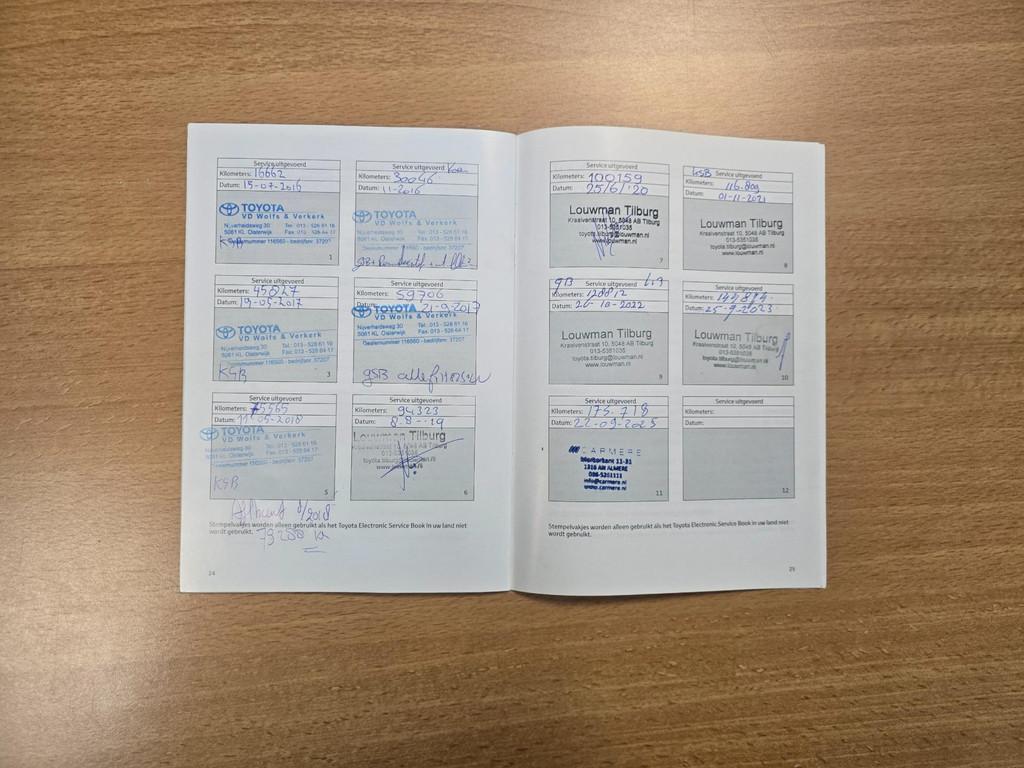 Service uitgevoerd
Kilometers: 16662
Datum: 15-07-2016
TOYOTA
VD Wolfs & Verkerk
Nijverheidsweg 30 Tel: 013 - 528 61 16
5061 KL Oisterwijk Fax: 013 - 528 64 17
Dealernummer 116560 - bedrijfsnr. 37207
KSB
1
Service uitgevoerd
Kilometers: 30046
Datum: 11-2016
TOYOTA
VD Wolfs & Verkerk
Nijverheidsweg 30 Tel: 013 - 528 61 16
5061 KL Oisterwijk Fax: 013 - 528 64 17
Dealernummer 116560 - bedrijfsnr. 37207
Service uitgevoerd
Kilometers: 45017
Datum: 19-05-2017
TOYOTA
VD Wolfs & Verkerk
Nijverheidsweg 30 Tel: 013 - 528 61 16
5061 KL Oisterwijk Fax: 013 - 528 64 17
Dealernummer 116560 - bedrijfsnr. 37207
KSB
3
Service uitgevoerd
Kilometers: 59706
Datum: 21-9-2017
TOYOTA
VD Wolfs & Verkerk
Nijverheidsweg 30 Tel: 013 - 528 61 16
5061 KL Oisterwijk Fax: 013 - 528 64 17
Dealernummer 116560 - bedrijfsnr. 37207
GSB alle
Service uitgevoerd
Kilometers: 75565
Datum: 11-05-2018
TOYOTA
VD Wolfs & Verkerk
Nijverheidsweg 30 Tel: 013 - 528 61 16
5061 KL Oisterwijk Fax: 013 - 528 64 17
Dealernummer 116560 - bedrijfsnr. 37207
KSB
5
8/2018
79200 KM
Service uitgevoerd
Kilometers: 94323
Datum: 8-8-19
Louwman Tilburg
Kraaivenstraat 10, 5048 AB Tilburg
013-5351035
toyota.tilburg@louwman.nl
www.louwman.nl
6
Stempelvakjes worden alleen gebruikt als het Toyota Electronic Service Book in uw land niet
wordt gebruikt.
24
Service uitgevoerd
Kilometers: 100159
Datum: 25/6/'20
Louwman Tilburg
Kraaivenstraat 10, 5048 AB Tilburg
013-5351035
toyota.tilburg@louwman.nl
www.louwman.nl
7
KSB Service uitgevoerd
Kilometers: 116.809
Datum: 01-11-2021
Louwman Tilburg
Kraaivenstraat 10, 5048 AB Tilburg
013-5351035
toyota.tilburg@louwman.nl
www.louwman.nl
8
GB
Service uitgevoerd
Kilometers: 128812
Datum: 26-10-2022
Louwman Tilburg
Kraaivenstraat 10, 5048 AB Tilburg
013-5351035
toyota.tilburg@louwman.nl
www.louwman.nl
9
Service uitgevoerd
Kilometers: 144894
Datum: 25-9-2023
Louwman Tilburg
Kraaivenstraat 10, 5048 AB Tilburg
013-5351035
toyota.tilburg@louwman.nl
www.louwman.nl
10
Service uitgevoerd
Kilometers: 175.718
Datum: 22-09-2025
CARMERE
11-31
ALMERE
info@carmere.nl
www.carmere.nl
11
Service uitgevoerd
Kilometers:
Datum:
12
Stempelvakjes worden alleen gebruikt als het Toyota Electronic Service Book in uw land niet
wordt gebruikt.
25